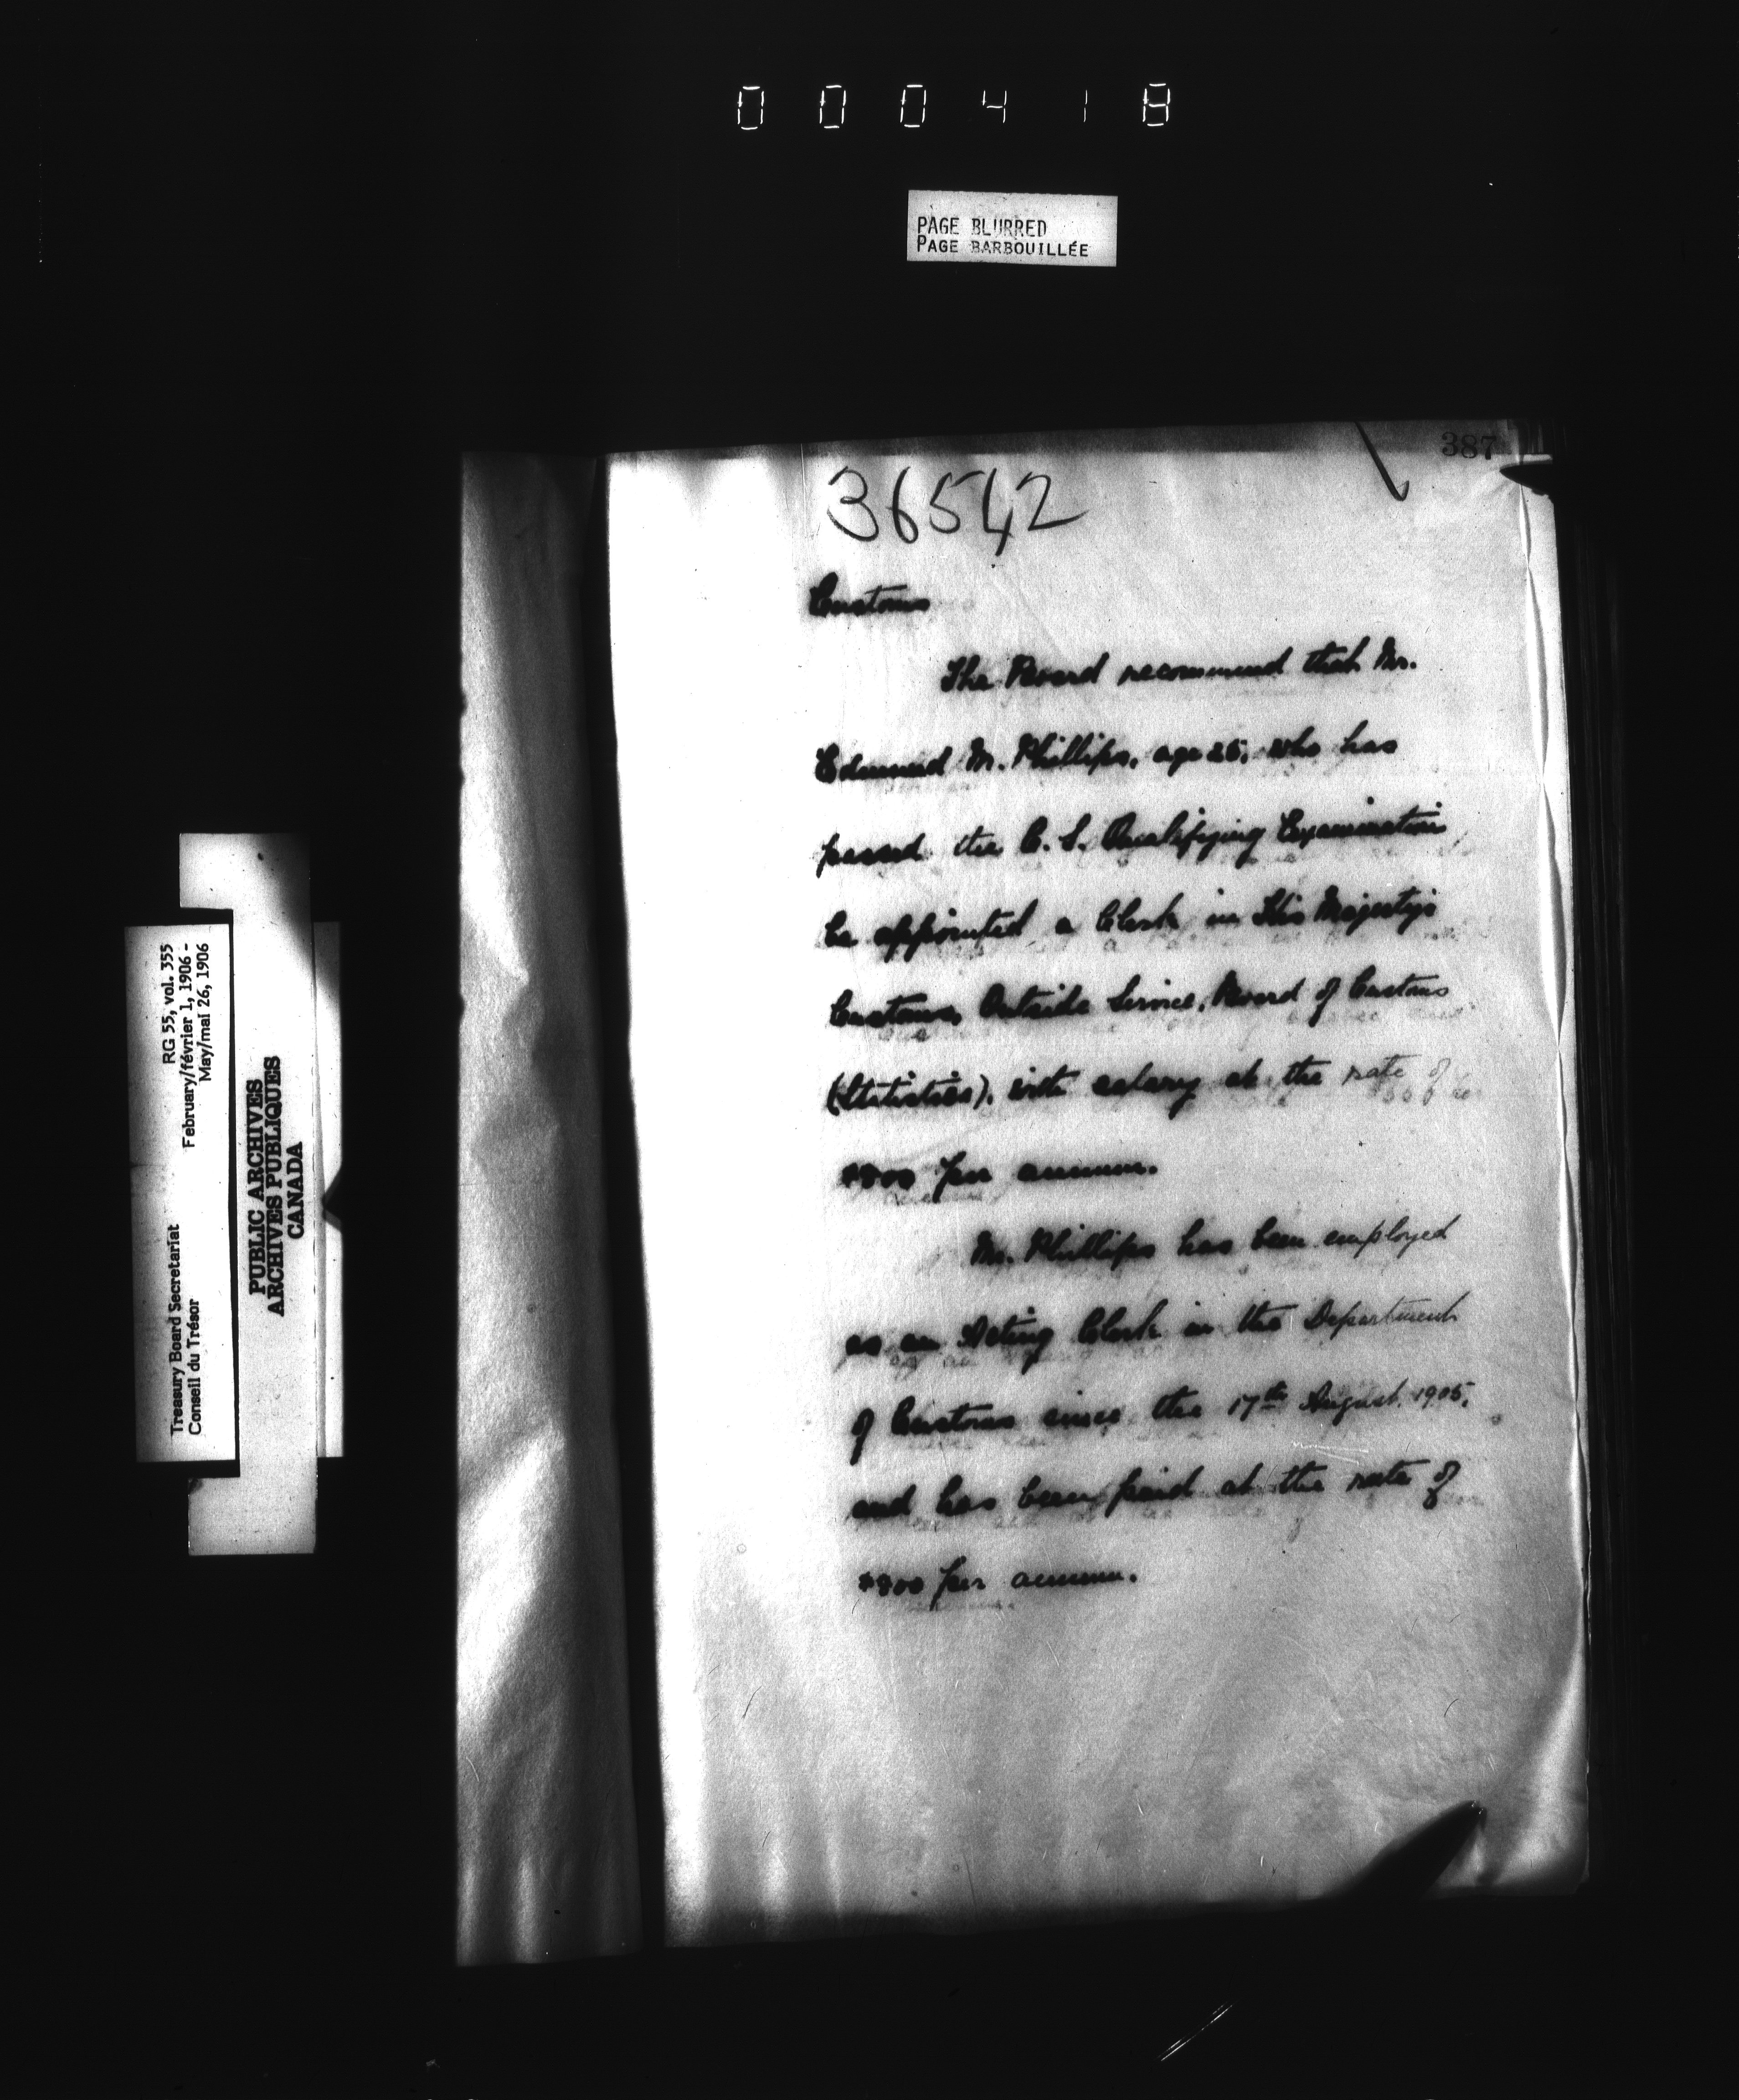 000418
PAGE BLURRED
PAGE BARBOUILLÉE
387
36542
Customs
The Board recommend that Mr.
Edmund M. Phillips, age 25, who has
passed the C. S. Qualifying Examination
be appointed a Clerk in His Majesty's
Customs, Outside Service, Board of Customs
(Statistics), with salary at the rate of
$800 per annum.
Mr. Phillips has been employed
as an Acting Clerk in the Department
of Customs since the 17th August, 1905,
and has been paid at the rate of
$800 per annum.
Treasury Board Secretariat
Conseil du Trésor
RG 55, vol. 355
February/février 1, 1906 -
May/mai 26, 1906
PUBLIC ARCHIVES
ARCHIVES PUBLIQUES
CANADA